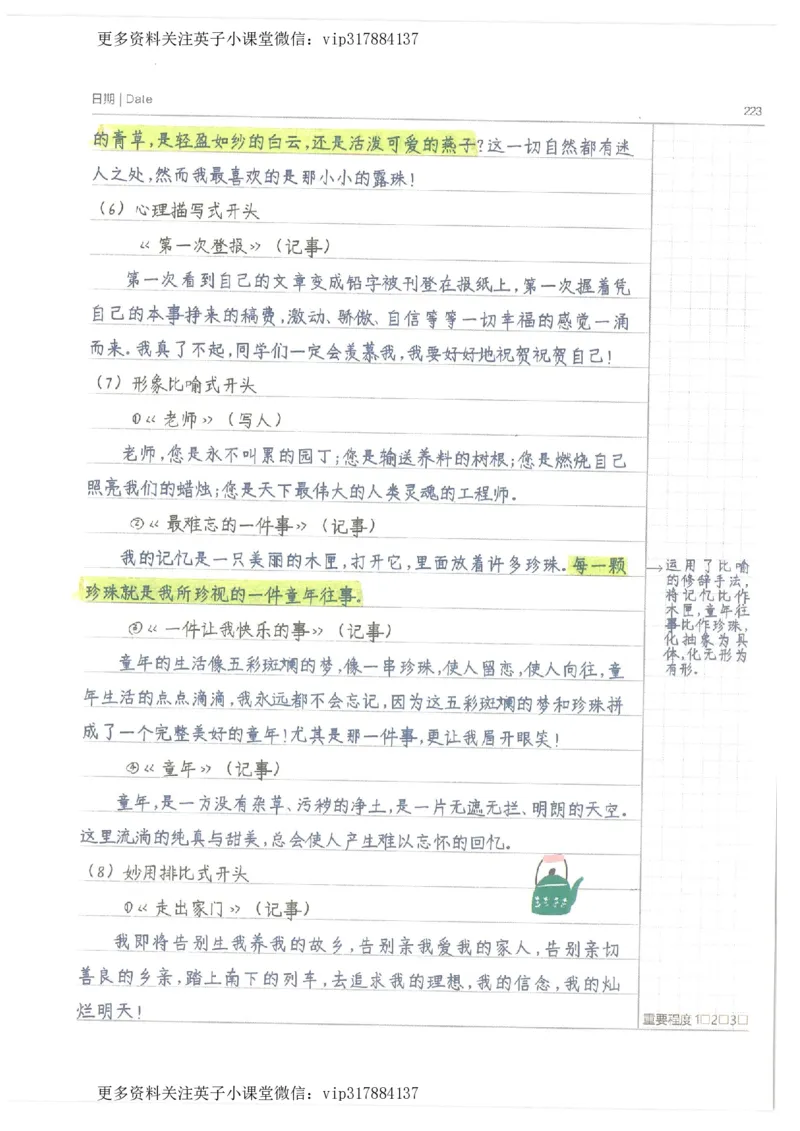 更多资料关注英子小课堂微信：vip317884137
日期 | Date
223
的青草,是轻盈如纱的白云,还是活泼可爱的燕子?这一切自然都有迷
人之处,然而我最喜欢的是那小小的露珠!
(6) 心理描写式开头
《第一次登报》(记事)
第一次看到自己的文章变成铅字被刊登在报纸上,第一次握着凭
自己的本事挣来的稿费,激动、骄傲、自信等等一切幸福的感觉一涌
而来.我真了不起,同学们一定会羡慕我,我要好好地祝贺祝贺自己!
(7) 形象比喻式开头
①《老师》(写人)
老师,您是永不叫累的园丁;您是输送养料的树根;您是燃烧自己
照亮我们的蜡烛;您是天下最伟大的人类灵魂的工程师.
②《最难忘的一件事》(记事)
我的记忆是一只美丽的木匣,打开它,里面放着许多珍珠.每一颗
珍珠就是我所珍视的一件童年往事.
→运用了比喻
的修辞手法,
将记忆比作
木匣,童年往
事比作珍珠,
化抽象为具
体,化无形为
有形.
③《一件让我快乐的事》(记事)
童年的生活像五彩斑斓的梦,像一串珍珠,使人留恋,使人向往,童
年生活的点点滴滴,我永远都不会忘记,因为这五彩斑斓的梦和珍珠拼
成了一个完整美好的童年!尤其是那一件事,更让我眉开眼笑!
④《童年》(记事)
童年,是一方没有杂草、污秽的净土,是一片无遮无拦、明朗的天空.
这里流淌的纯真与甜美,总会使人产生难以忘怀的回忆.
(8) 妙用排比式开头
①《走出家门》(记事)
我即将告别生我养我的故乡,告别亲我爱我的家人,告别亲切
善良的乡亲,踏上南下的列车,去追求我的理想,我的信念,我的灿
烂明天!
重要程度 1□2□3□
更多资料关注英子小课堂微信：vip317884137